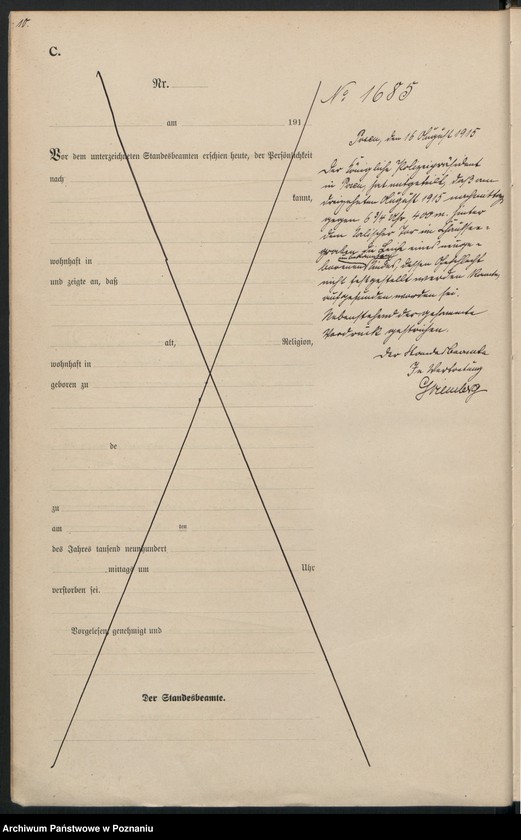 10.
C.
Nr.
am 191
Vor dem unterzeichneten Standesbeamten erschien heute, der Persönlichkeit
nach
kannt,
wohnhaft in
und zeigte an, daß
alt, Religion,
wohnhaft in
geboren zu
de
zu
am
des Jahres tausend neunhundert
mittags um Uhr
verstorben sei.
Vorgelesen, genehmigt und
Der Standesbeamte.
No 1685
Posen, den 16 August 1915
Der Königliche Polizeipräsident
in Posen hat mitgeteilt, daß am
dreizehnten August 1915 nachmittags
gegen 6 3/4 Uhr, 400 m. hinter
dem Kalischer Tor im Chaussee-
graben die Leiche eines neuge-
borenen Kindes, dessen Geschlecht
nicht festgestellt werden konnte,
aufgefunden worden sei.
Nebenstehend der gesamte
Vordruck gestrichen.
Der Standesbeamte
In Vertretung
Archiwum Państwowe w Poznaniu